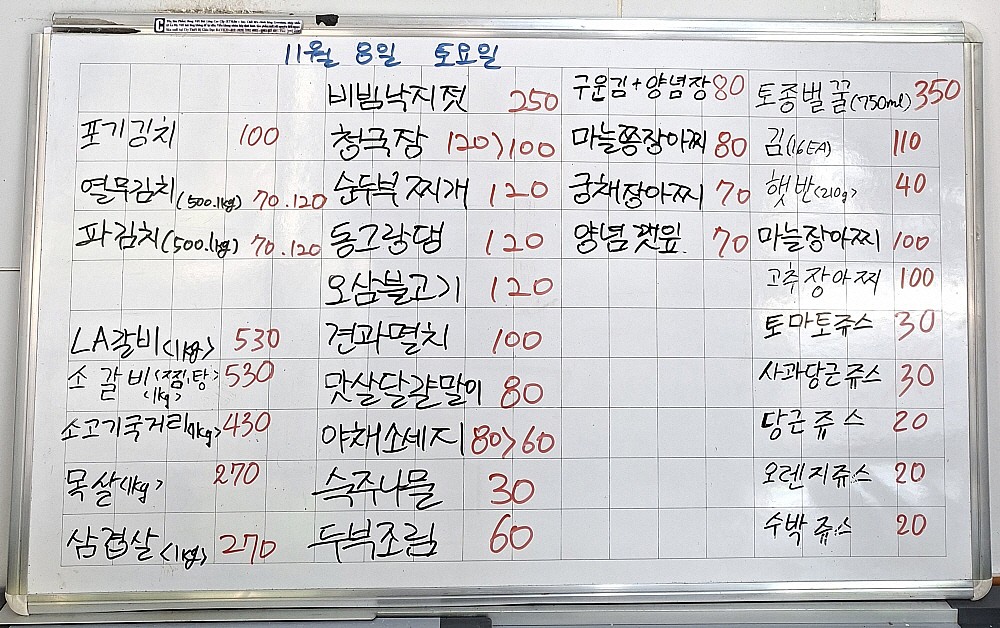 11월 8일 토요일
포기김치 100
열무김치(500.1kg) 70.120
파김치(500.1kg) 70.120
LA갈비<1kg> 530
소갈비<찜,탕> 530
<1kg>
소고기국거리<1kg> 430
목살<1kg> 270
삼겹살<1kg> 270
비빔낙지젓 250
청국장 120>100
순두부찌개 120
동그랑땡 120
오삼불고기 120
견과멸치 100
맛살달걀말이 80
야채소세지 80>60
숙주나물 30
두부조림 60
구운김+양념장 80
마늘쫑장아찌 80
궁채장아찌 70
양념깻잎 70
토종벌꿀(750ml) 350
김(16EA) 110
햇반<210g> 40
마늘장아찌 100
고추장아찌 100
토마토쥬스 30
사과당근쥬스 30
당근쥬스 20
오렌지쥬스 20
수박쥬스 20